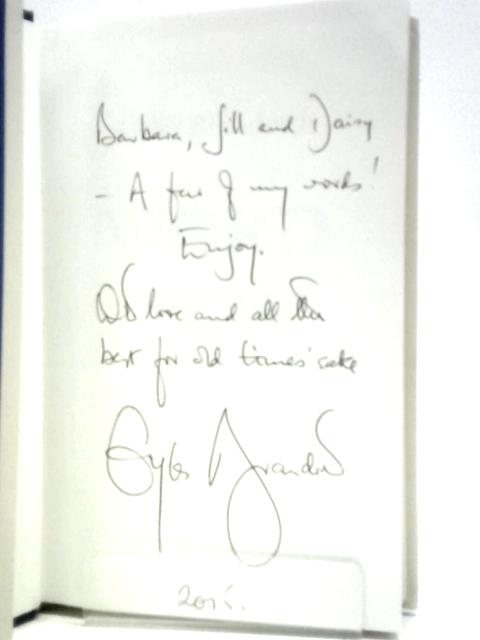 Barbara, Jill and Daisy
- A few of my words!
Enjoy.
love and all the
best for old times' sake
Gyles Brandreth
2015.